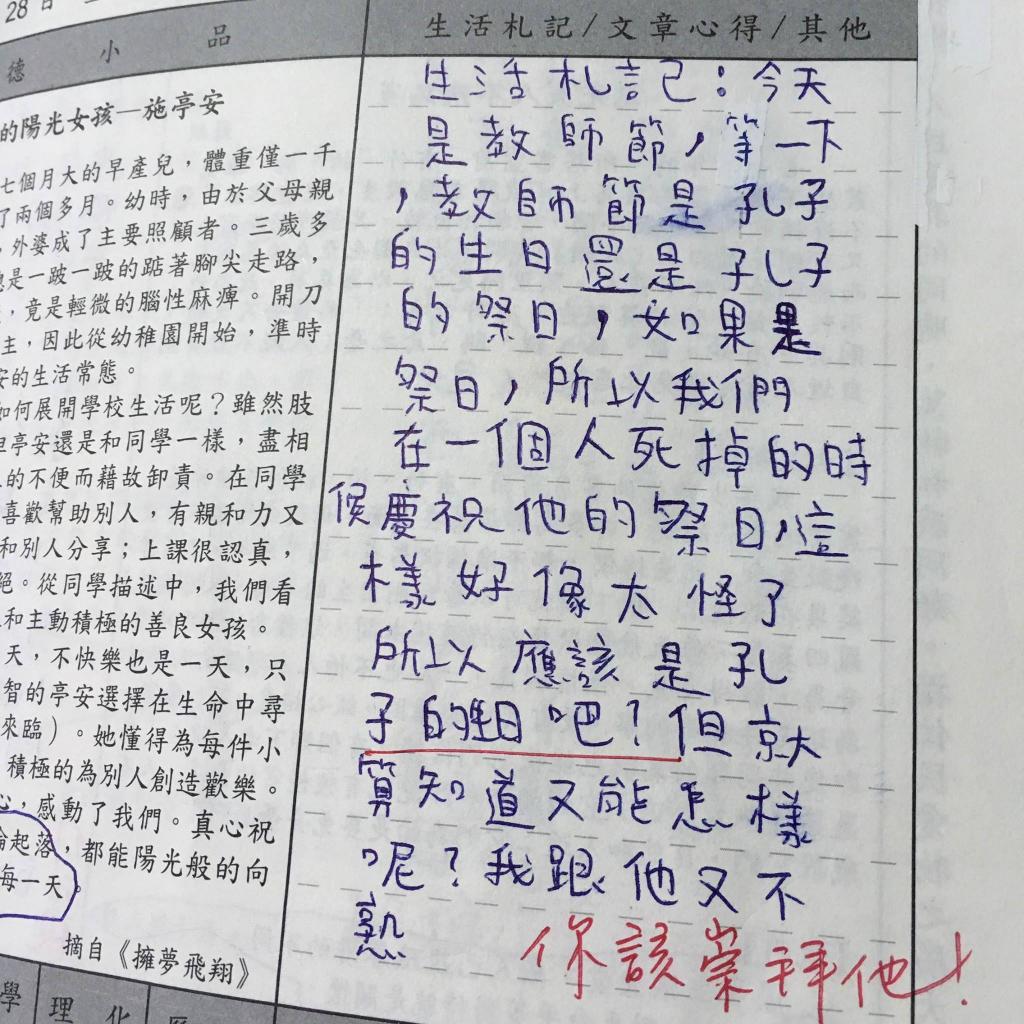 28日
德小品
的陽光女孩—施亭安
七個月大的早產兒，體重僅一千
了兩個多月。幼時，由於父母親
，外婆成了主要照顧者。三歲多
是一跛一跛的踮著腳尖走路，
，竟是輕微的腦性麻痺。開刀
主，因此從幼稚園開始，準時
安的生活常態。
如何展開學校生活呢？雖然肢
但亭安還是和同學一樣，盡相
的不便而藉故卸責。在同學
喜歡幫助別人，有親和力又
和別人分享；上課很認真，
。從同學描述中，我們看
和主動積極的善良女孩。
天，不快樂也是一天，只
智的亭安選擇在生命中尋
來臨）。她懂得為每件小
積極的為別人創造歡樂。
心，感動了我們。真心祝
起落，都能陽光般的向
每一天。
摘自《擁夢飛翔》
學
理化
生活札記/文章心得/其他
生活札記：今天
是教師節，等一下
，教師節是孔子
的生日還是孔子
的祭日，如果是
祭日，所以我們
在一個人死掉的時
候慶祝他的祭日，這
樣好像太怪了
所以應該是孔
子的生日吧？但就
算知道又能怎樣
呢？我跟他又不
熟
你該崇拜他！